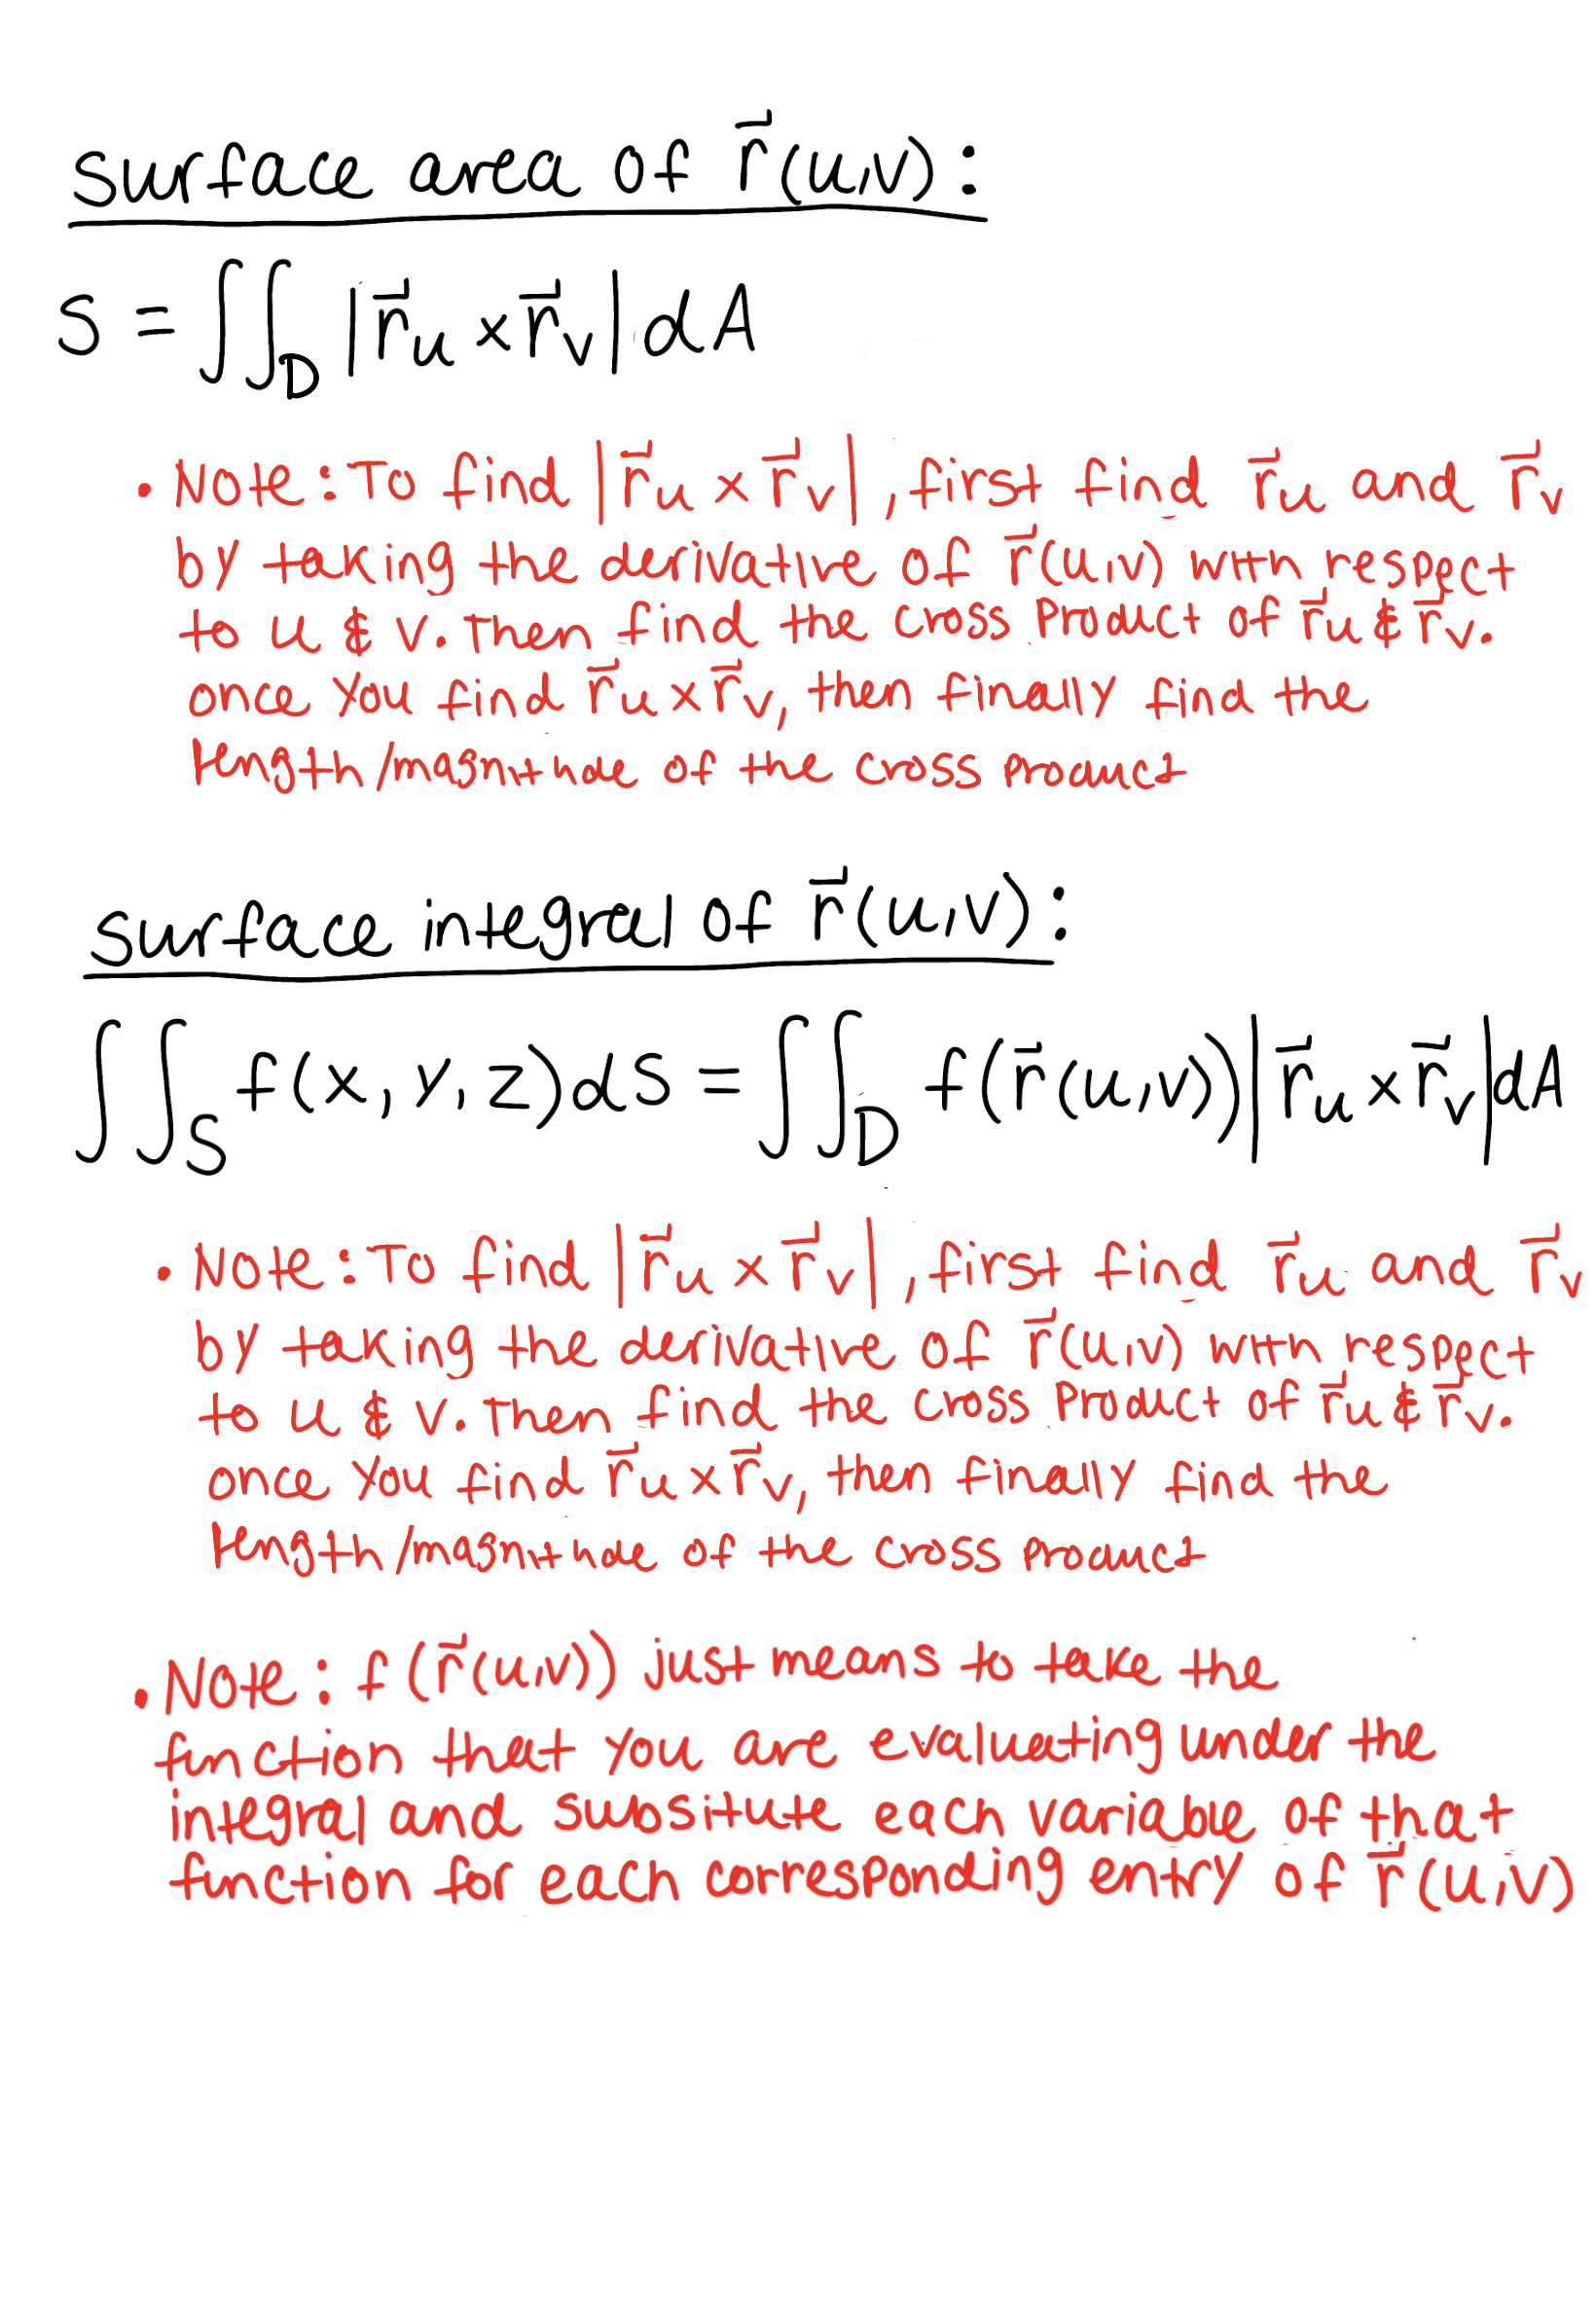 surface area of r⃗(u,v):
S = ∬_D |r⃗u × r⃗v| dA
• Note: To find |r⃗u × r⃗v|, first find r⃗u and r⃗v
by taking the derivative of r⃗(u,v) with respect
to u & v. Then find the cross product of r⃗u & r⃗v.
once you find r⃗u × r⃗v, then finally find the
length/magnitude of the cross product
surface integral of r⃗(u,v):
∬_S f(x,y,z)dS = ∬_D f(r⃗(u,v))|r⃗u × r⃗v|dA
• Note: To find |r⃗u × r⃗v|, first find r⃗u and r⃗v
by taking the derivative of r⃗(u,v) with respect
to u & v. Then find the cross product of r⃗u & r⃗v.
once you find r⃗u × r⃗v, then finally find the
length/magnitude of the cross product
• Note: f(r⃗(u,v)) just means to take the
function that you are evaluating under the
integral and subsitute each variable of that
function for each corresponding entry of r⃗(u,v)